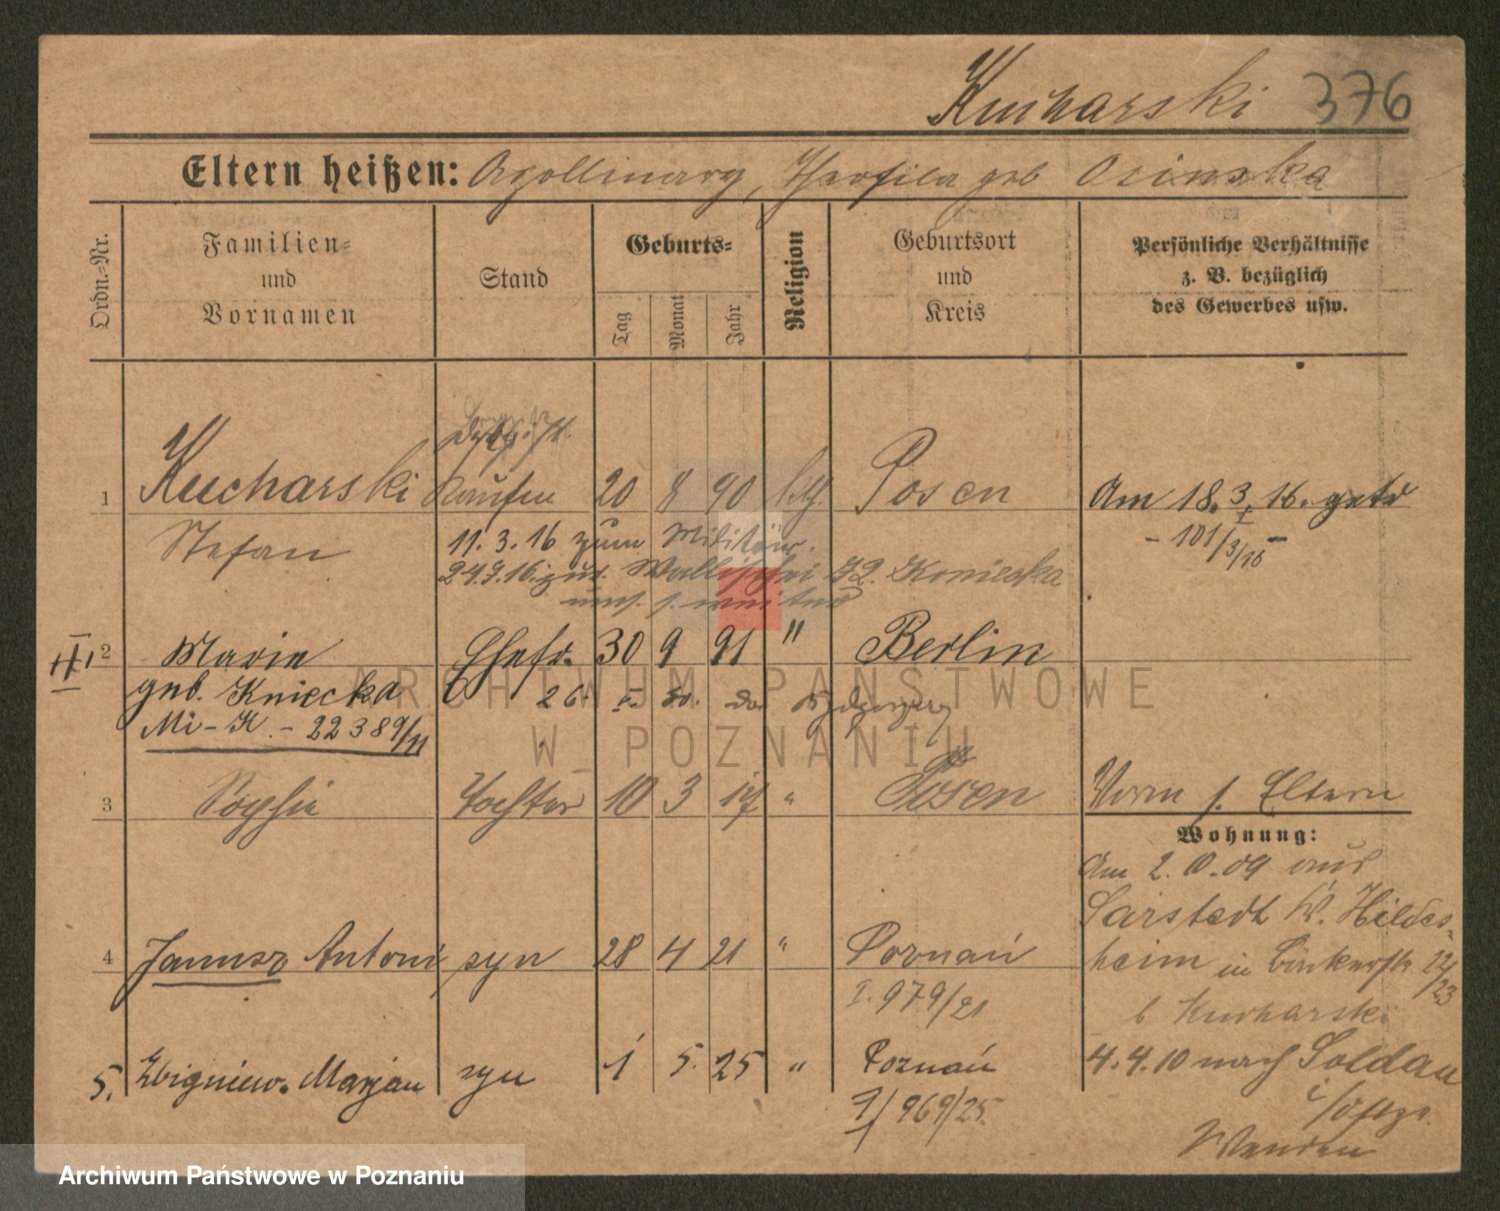 Kucharski 376
Eltern heißen: Apollinary, Theofila geb Osinska
Ordn.-Nr.
Familien-
und
Vornamen
Stand
Geburts-
Tag
Monat
Jahr
Religion
Geburtsort
und
Kreis
Persönliche Verhältnisse
z. B. bezüglich
des Gewerbes usw.
1 Kucharski Kaufm 20 8 90 kth. Posen Am 18.3.16. getr
Stefan
11.3.16 zum Militär.
24.7.16. zur. Wallischei 72. Konieska
2 Marie Ehefr. 30 9 91 " Berlin
geb. Kniecka
Mi-K. - 22389/11
3 Sophie Tochter 10 3 17 " Posen Vorm s. Eltern
Wohnung:
Am 2.10.09 aus
Sarstedt K. Hildes-
4 Janusz Antoni syn 28 4 21 " Poznań heim in Bäckerstr. 22/23
I. 979/21 b Kucharski
5. Zbigniew. Marjan syn 1 5. 25 " Poznań 4.4.10 nach Soldau
9/969/25. i/Ostpr.
Wenden
ARCHIWUM PAŃSTWOWE
W POZNANIU
Archiwum Państwowe w Poznaniu